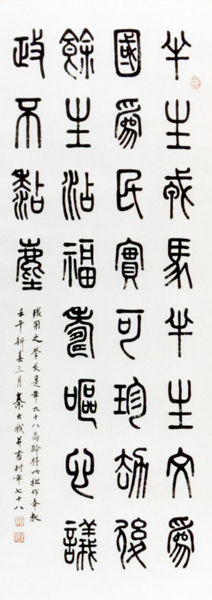 半生戎馬半生文爲
國爲民實可珍劫後
餘生沾福壽嘔心議
政不黏塵
用之學長是年九十八高齡特以拙作奉教
壬午新春三月秦大并書時年七十八